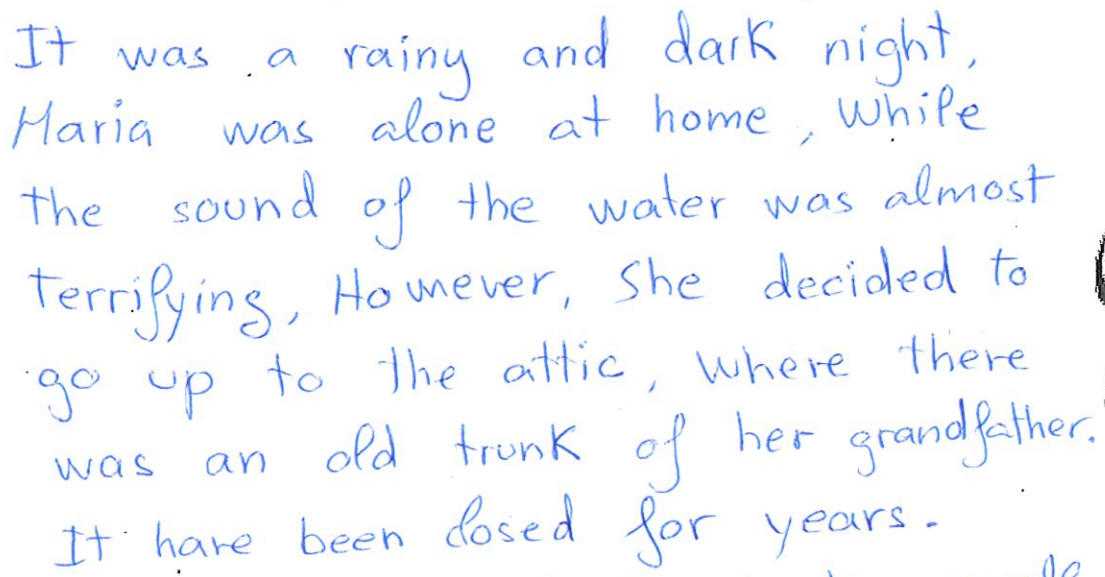 It was a rainy and dark night,
Maria was alone at home, While
the sound of the water was almost
terrifying, However, She decided to
go up to the attic, where there
was an old trunk of her grandfather.
It have been closed for years.